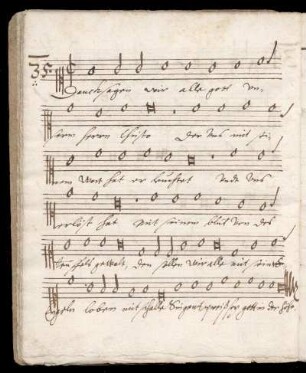 35.
Dancksagen wir alle gott un-
serm herrn Christo der uns mit sei
nem Wort hat erleuchtet Vnd Vns
erlöst hat mit seinem blut von des
teufels gewalt, den sollen wir alle mit seinen
Engeln loben mit schalle Singent preiß sey gott in der höhe.